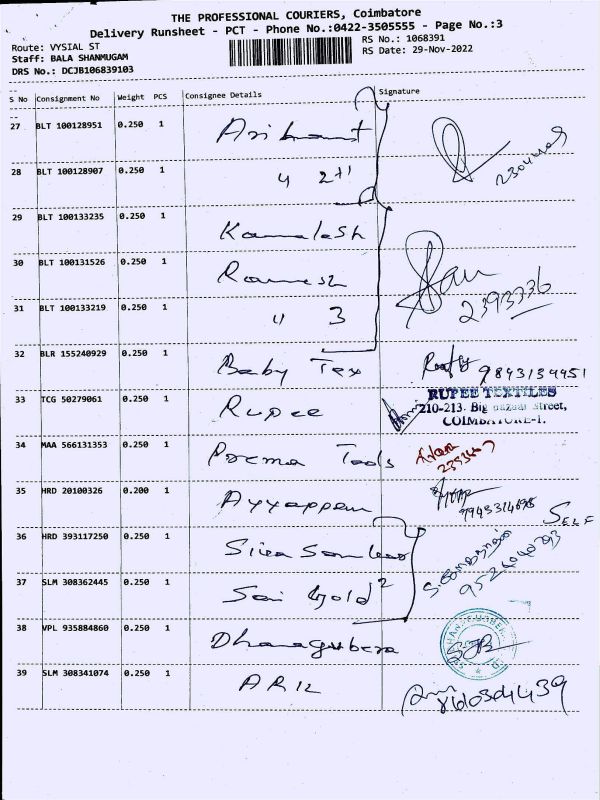 THE PROFESSIONAL COURIERS, Coimbatore
Delivery Runsheet - PCT - Phone No.:0422-3505555 - Page No.:3
Route: VYSIAL ST
RS No.: 1068391
Staff: BALA SHANMUGAM
RS Date: 29-Nov-2022
DRS No.: DCJB106839103
S No Consignment No Weight PCS Consignee Details Signature
27 BLT 100128951 0.250 1 Arihant
28 BLT 100128907 0.250 1 " 2+1
29 BLT 100133235 0.250 1 Kamalesh
30 BLT 100131526 0.250 1 Ramesh
31 BLT 100133219 0.250 1 " 3
2393736
32 BLR 155240929 0.250 1 Baby Tex
33 TCG 50279061 0.250 1 Rupee
RUPEE TEXTILES
210-213. Big bazaar street,
COIMBATORE-1.
34 MAA 566131353 0.250 1 Poorna Tools
35 HRD 20100326 0.200 1 Ayyappan
SELF
36 HRD 393117250 0.250 1
37 SLM 308362445 0.250 1 Sai Gold 2
38 VPL 935884860 0.250 1 Dhanagubera
39 SLM 308341074 0.250 1